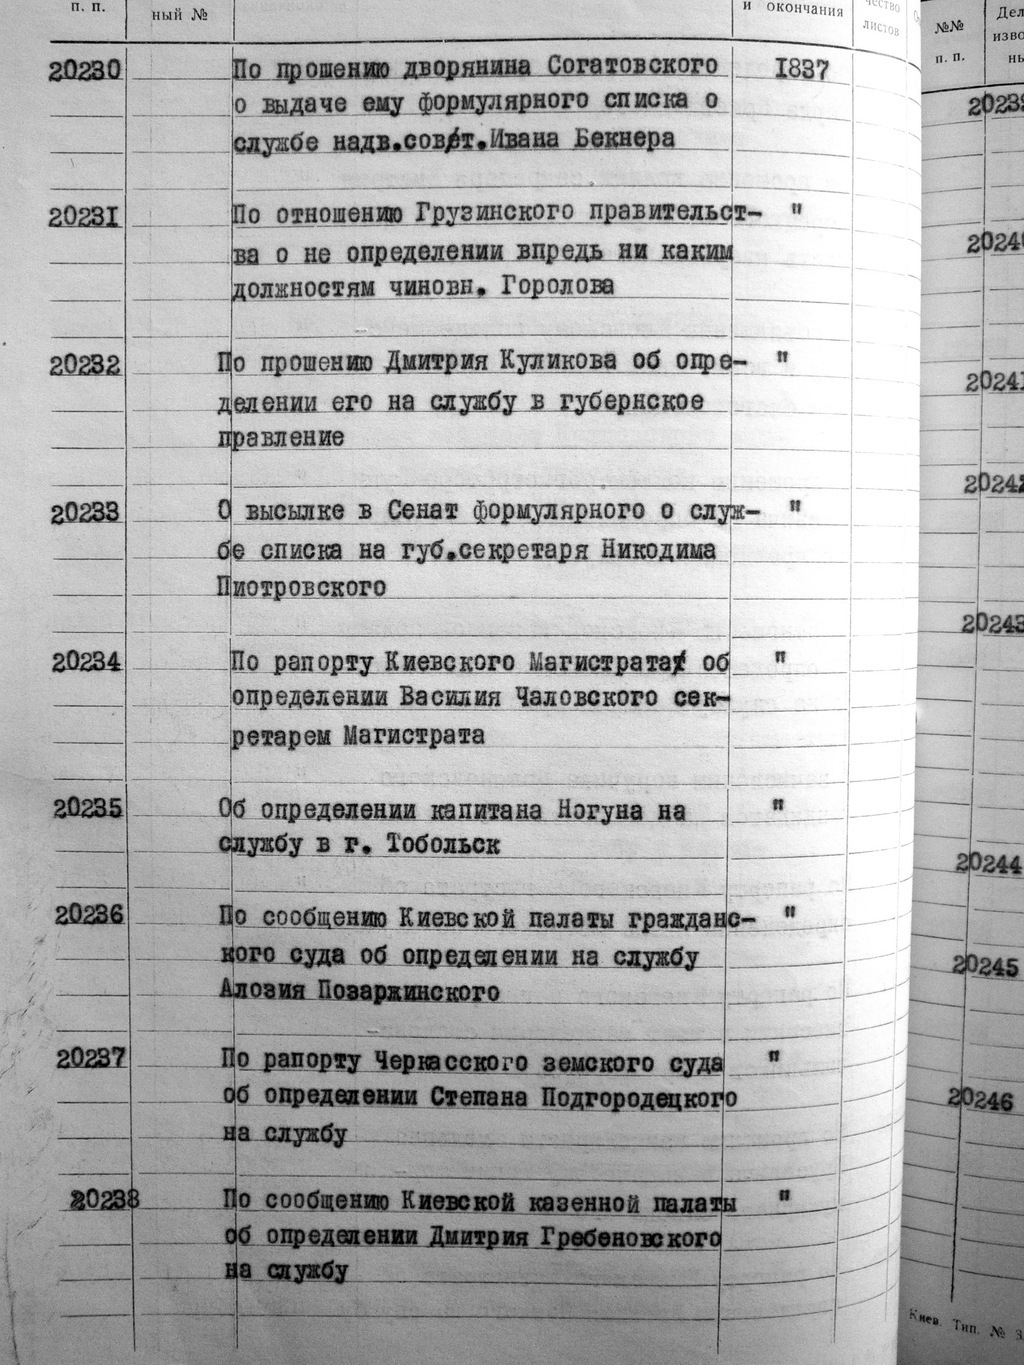 п. п.
ный №
и окончания
чество
листов
20230 По прошению дворянина Согатовского 1837
о выдаче ему формулярного списка о
службе надв.совет.Ивана Бекнера
20231 По отношению Грузинского правительст- "
ва о не определении впредь ни каким
должностям чиновн. Горолова
20232 По прошению Дмитрия Куликова об опре- "
делении его на службу в губернское
правление
20233 О высылке в Сенат формулярного о служ- "
бе списка на губ.секретаря Никодима
Пиотровского
20234 По рапорту Киевского Магистрата об "
определении Василия Чаловского сек-
ретарем Магистрата
20235 Об определении капитана Ногуна на "
службу в г. Тобольск
20236 По сообщению Киевской палаты гражданс- "
кого суда об определении на службу
Алозия Позаржинского
20237 По рапорту Черкасского земского суда "
об определении Степана Подгородецкого
на службу
20238 По сообщению Киевской казенной палаты "
об определении Дмитрия Гребеновского
на службу
№№
п. п.
Дел
изво
ны
20239
20240
20241
20242
20243
20244
20245
20246
Киев. Тип. № 3